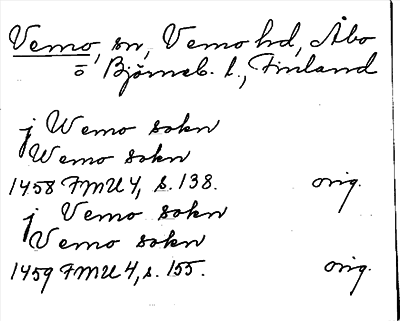 Vemo, sn, Vemo hd, Åbo
o Björneb. l., Finland
j Wemo sokn
Wemo sokn
1458 FMU 4, s. 138. orig.
j Vemo sokn
Vemo sokn
1459 FMU 4, s. 155. orig.